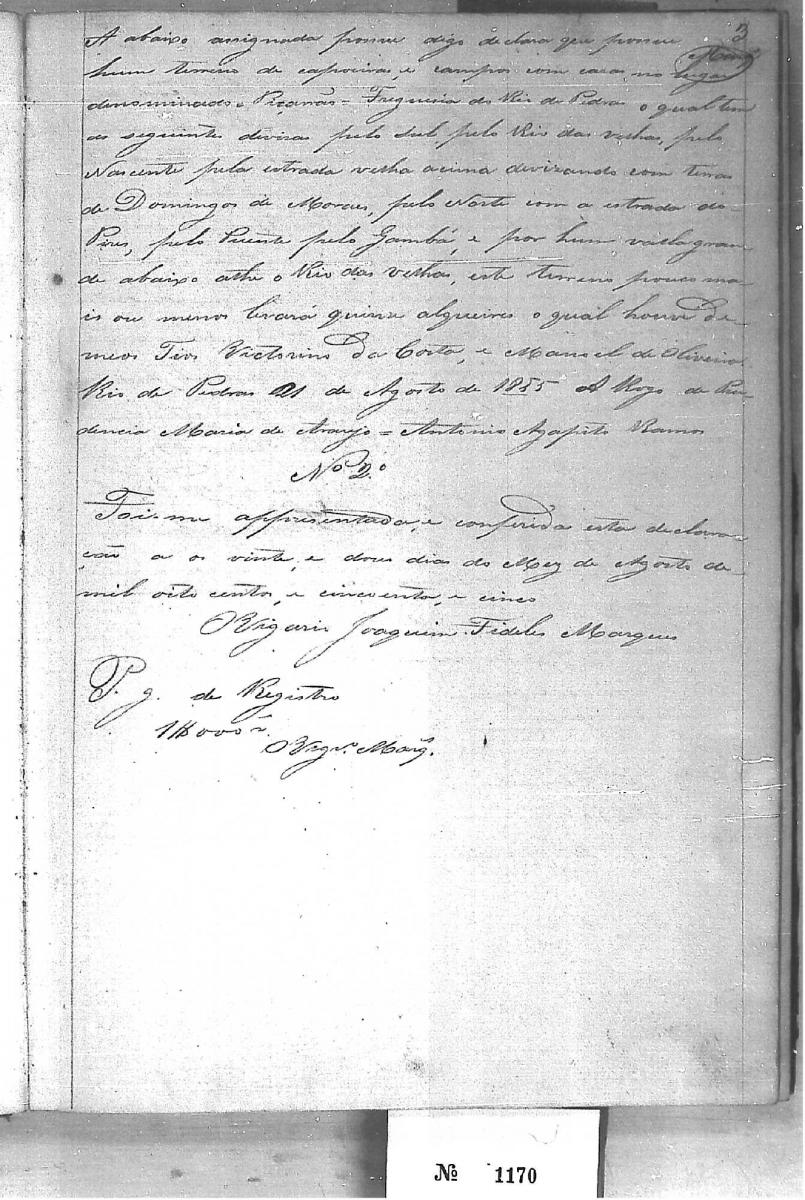 3
Marq.
A abaixo assignada possue digo declara que possue
hum terreno de capoeiras, e campos com cazas no lugar
denominado = Piçarrão = Freguesia do Rio de Pedras o qual tem
as seguintes divizas pelo Sul pelo Rio das velhas, pelo
Nascente pela estrada velha acima divizando com terras
de Domingos de Moraes, pelo Norte com a estrada do
Pires, pelo Puente pelo Gambá, e por hum vallo gran
de abaixo athe o Rio das velhas, este terreno pouco ma
is ou menos levará quinze alqueires o qual houve de
meos Tios Victorino da Costa, e Manoel de Oliveira
Rio de Pedras 21 de Agosto de 1855 A Rogo de Pru
dencia Maria de Araujo = Antonio Agapito Ramos
Nº 2º
Foi-me appresentada, e conferida esta declara
ção a os vinte, e dous dias do Mez de Agosto de
mil oito centos, e cincoenta, e cinco
O Vigario Joaquim Fideles Marques
P. g. de Registro
1$000 r.
O Vigrº Marq.
Nº 1170